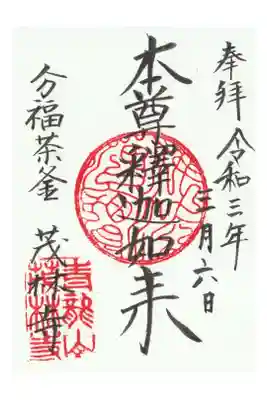 奉拜 令和三年
三月六日
本尊釋迦如来
分福茶釜
茂林寺
青龍山
茂林寺